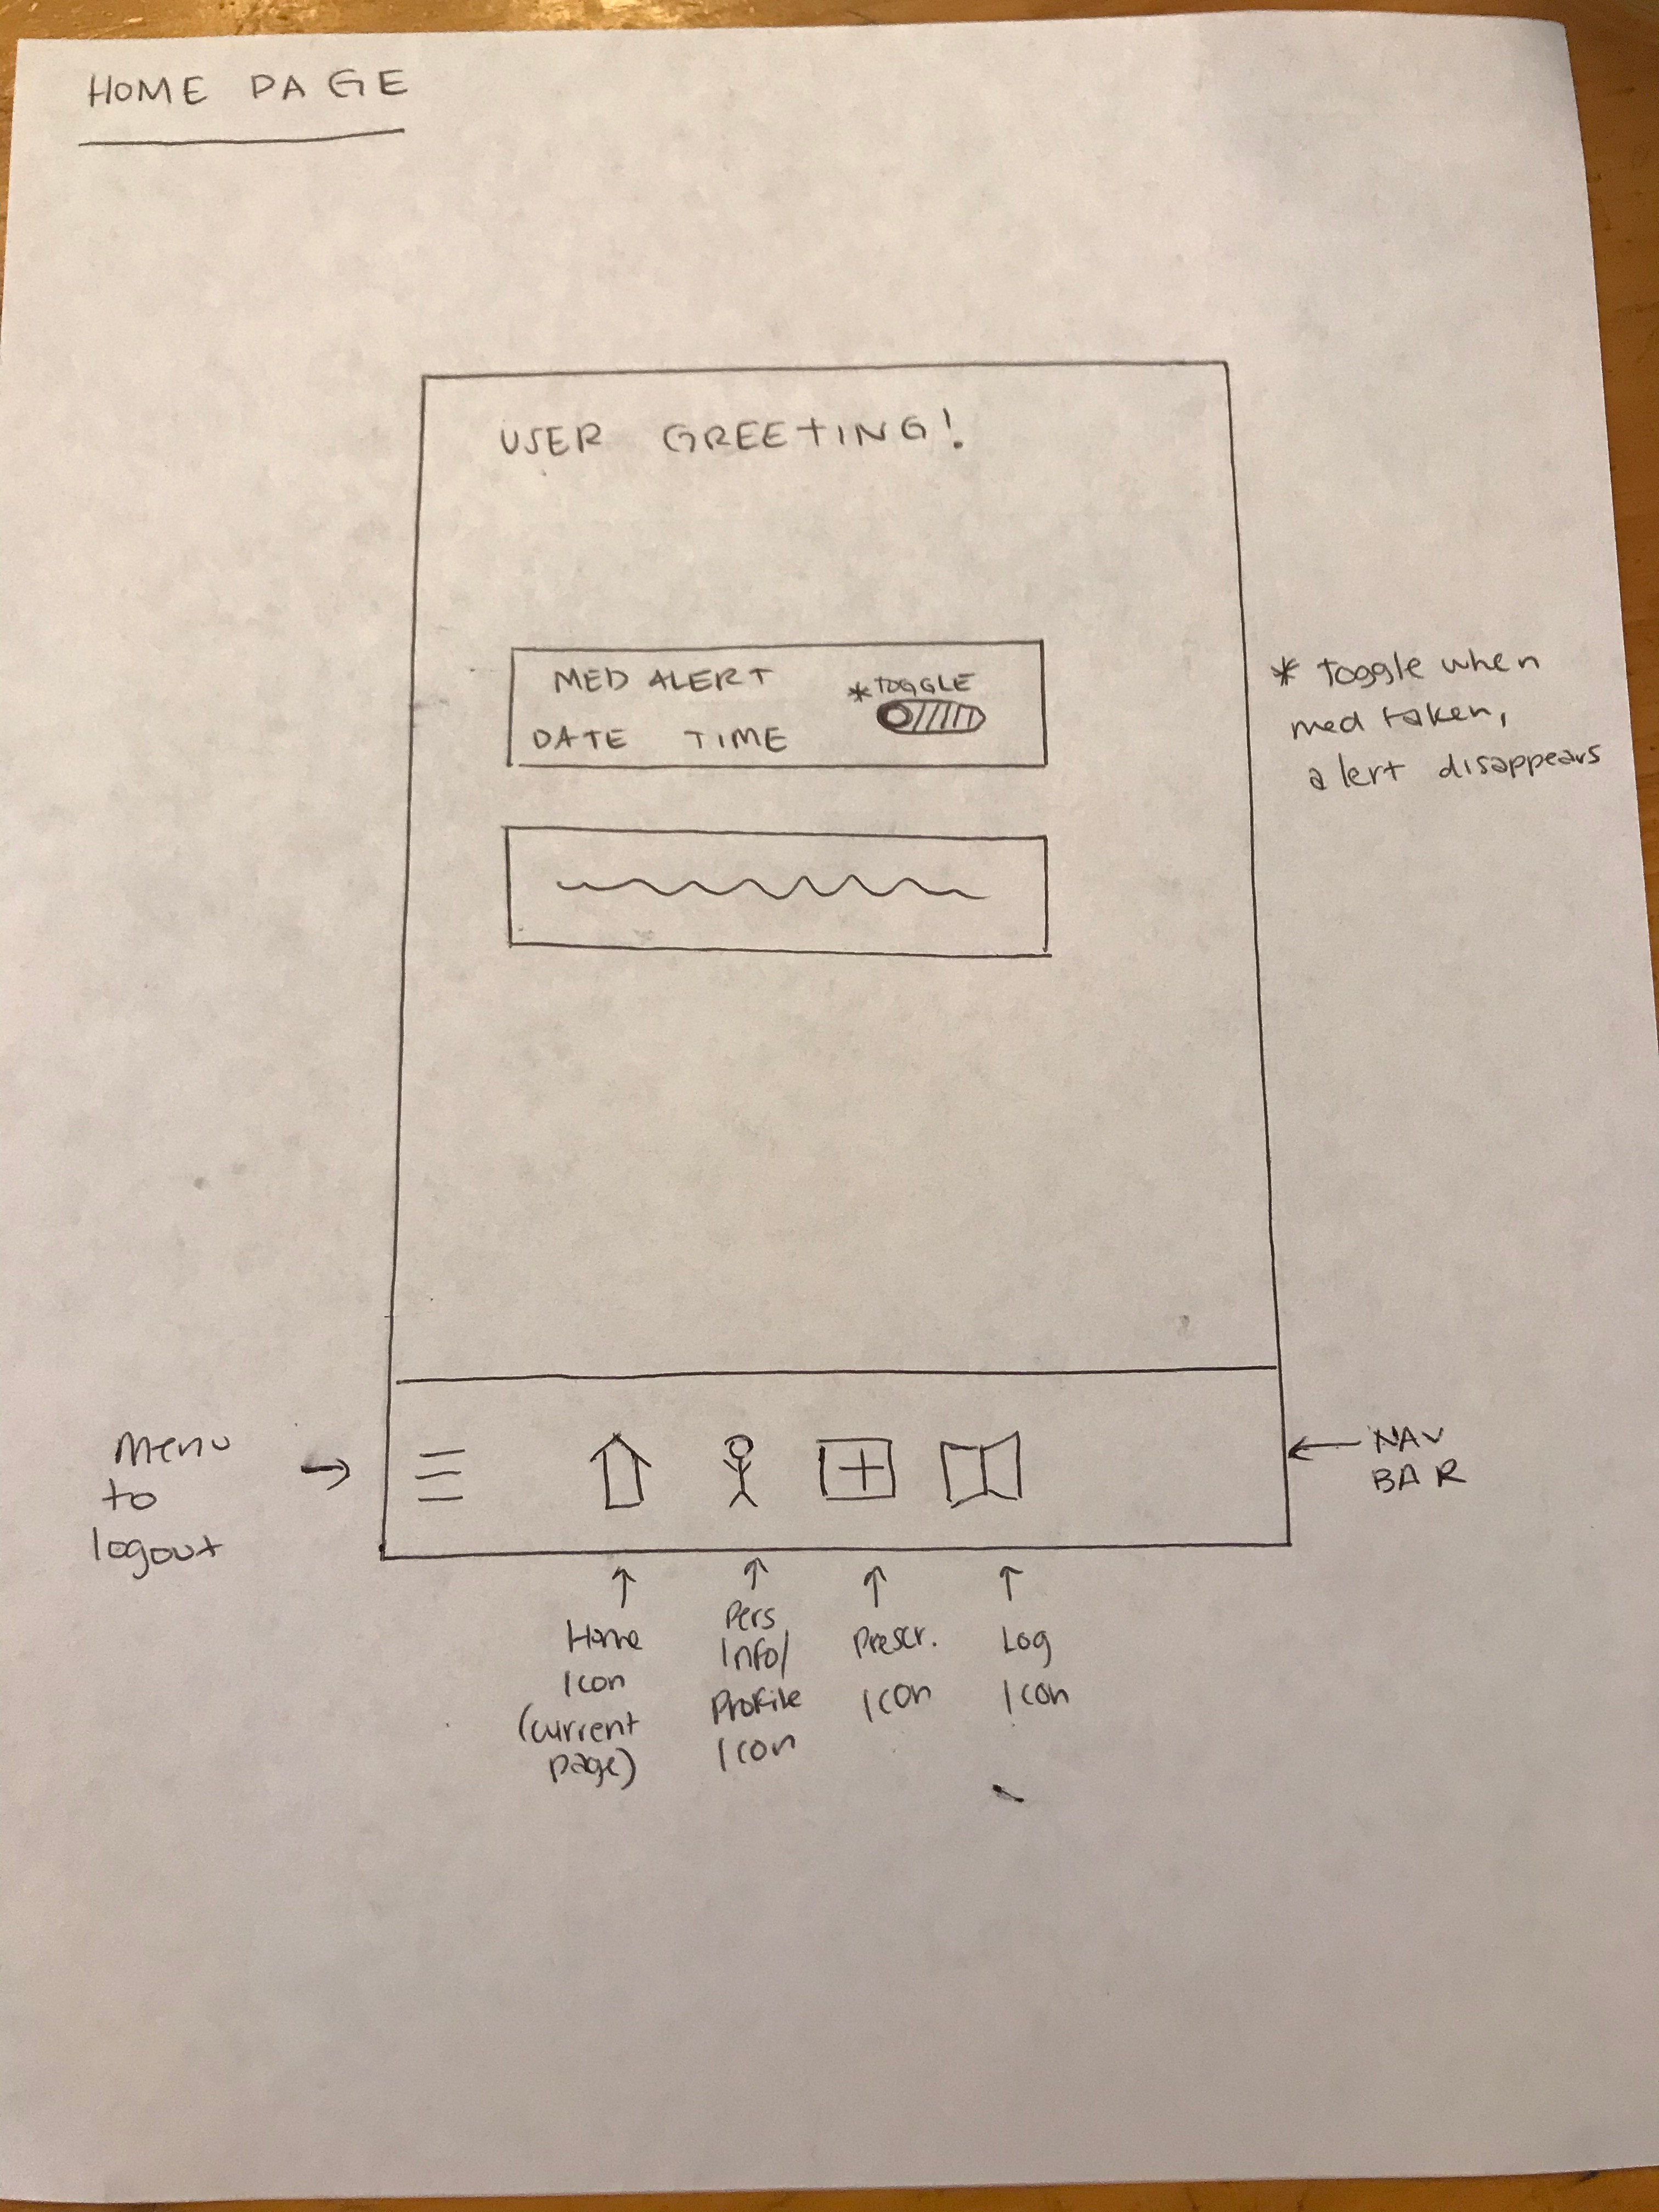 HOME PAGE
USER GREETING!
MED ALERT
*TOGGLE
DATE TIME
* toggle when
med taken,
alert disappears
menu
to
logout
NAV
BAR
Home
Icon
(current
page)
Pers
Info/
Profile
Icon
Prescr.
Icon
Log
Icon